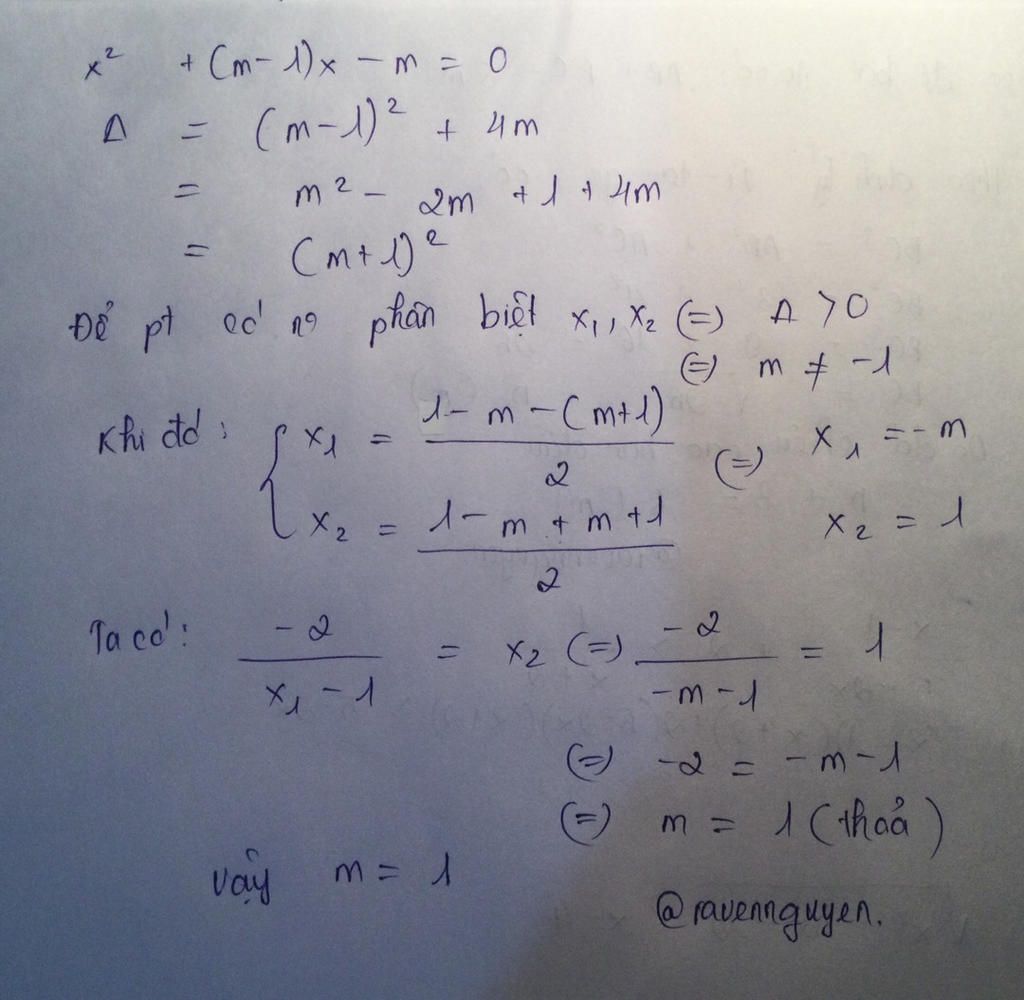 x² + (m-1)x - m = 0
Δ = (m-1)² + 4m
= m² - 2m + 1 + 4m
= (m+1)²
Để pt có n⁰ phân biệt x₁, x₂ (=) Δ > 0
(=) m ≠ -1
Khi đó: { x₁ = \frac{1 - m - (m+1)}{2} (=) x₁ = -m
x₂ = \frac{1 - m + m + 1}{2} x₂ = 1
Ta có: \frac{-2}{x₁ - 1} = x₂ (=) \frac{-2}{-m - 1} = 1
(=) -2 = -m - 1
(=) m = 1 (thoả)
Vậy m = 1
@ravennguyen.